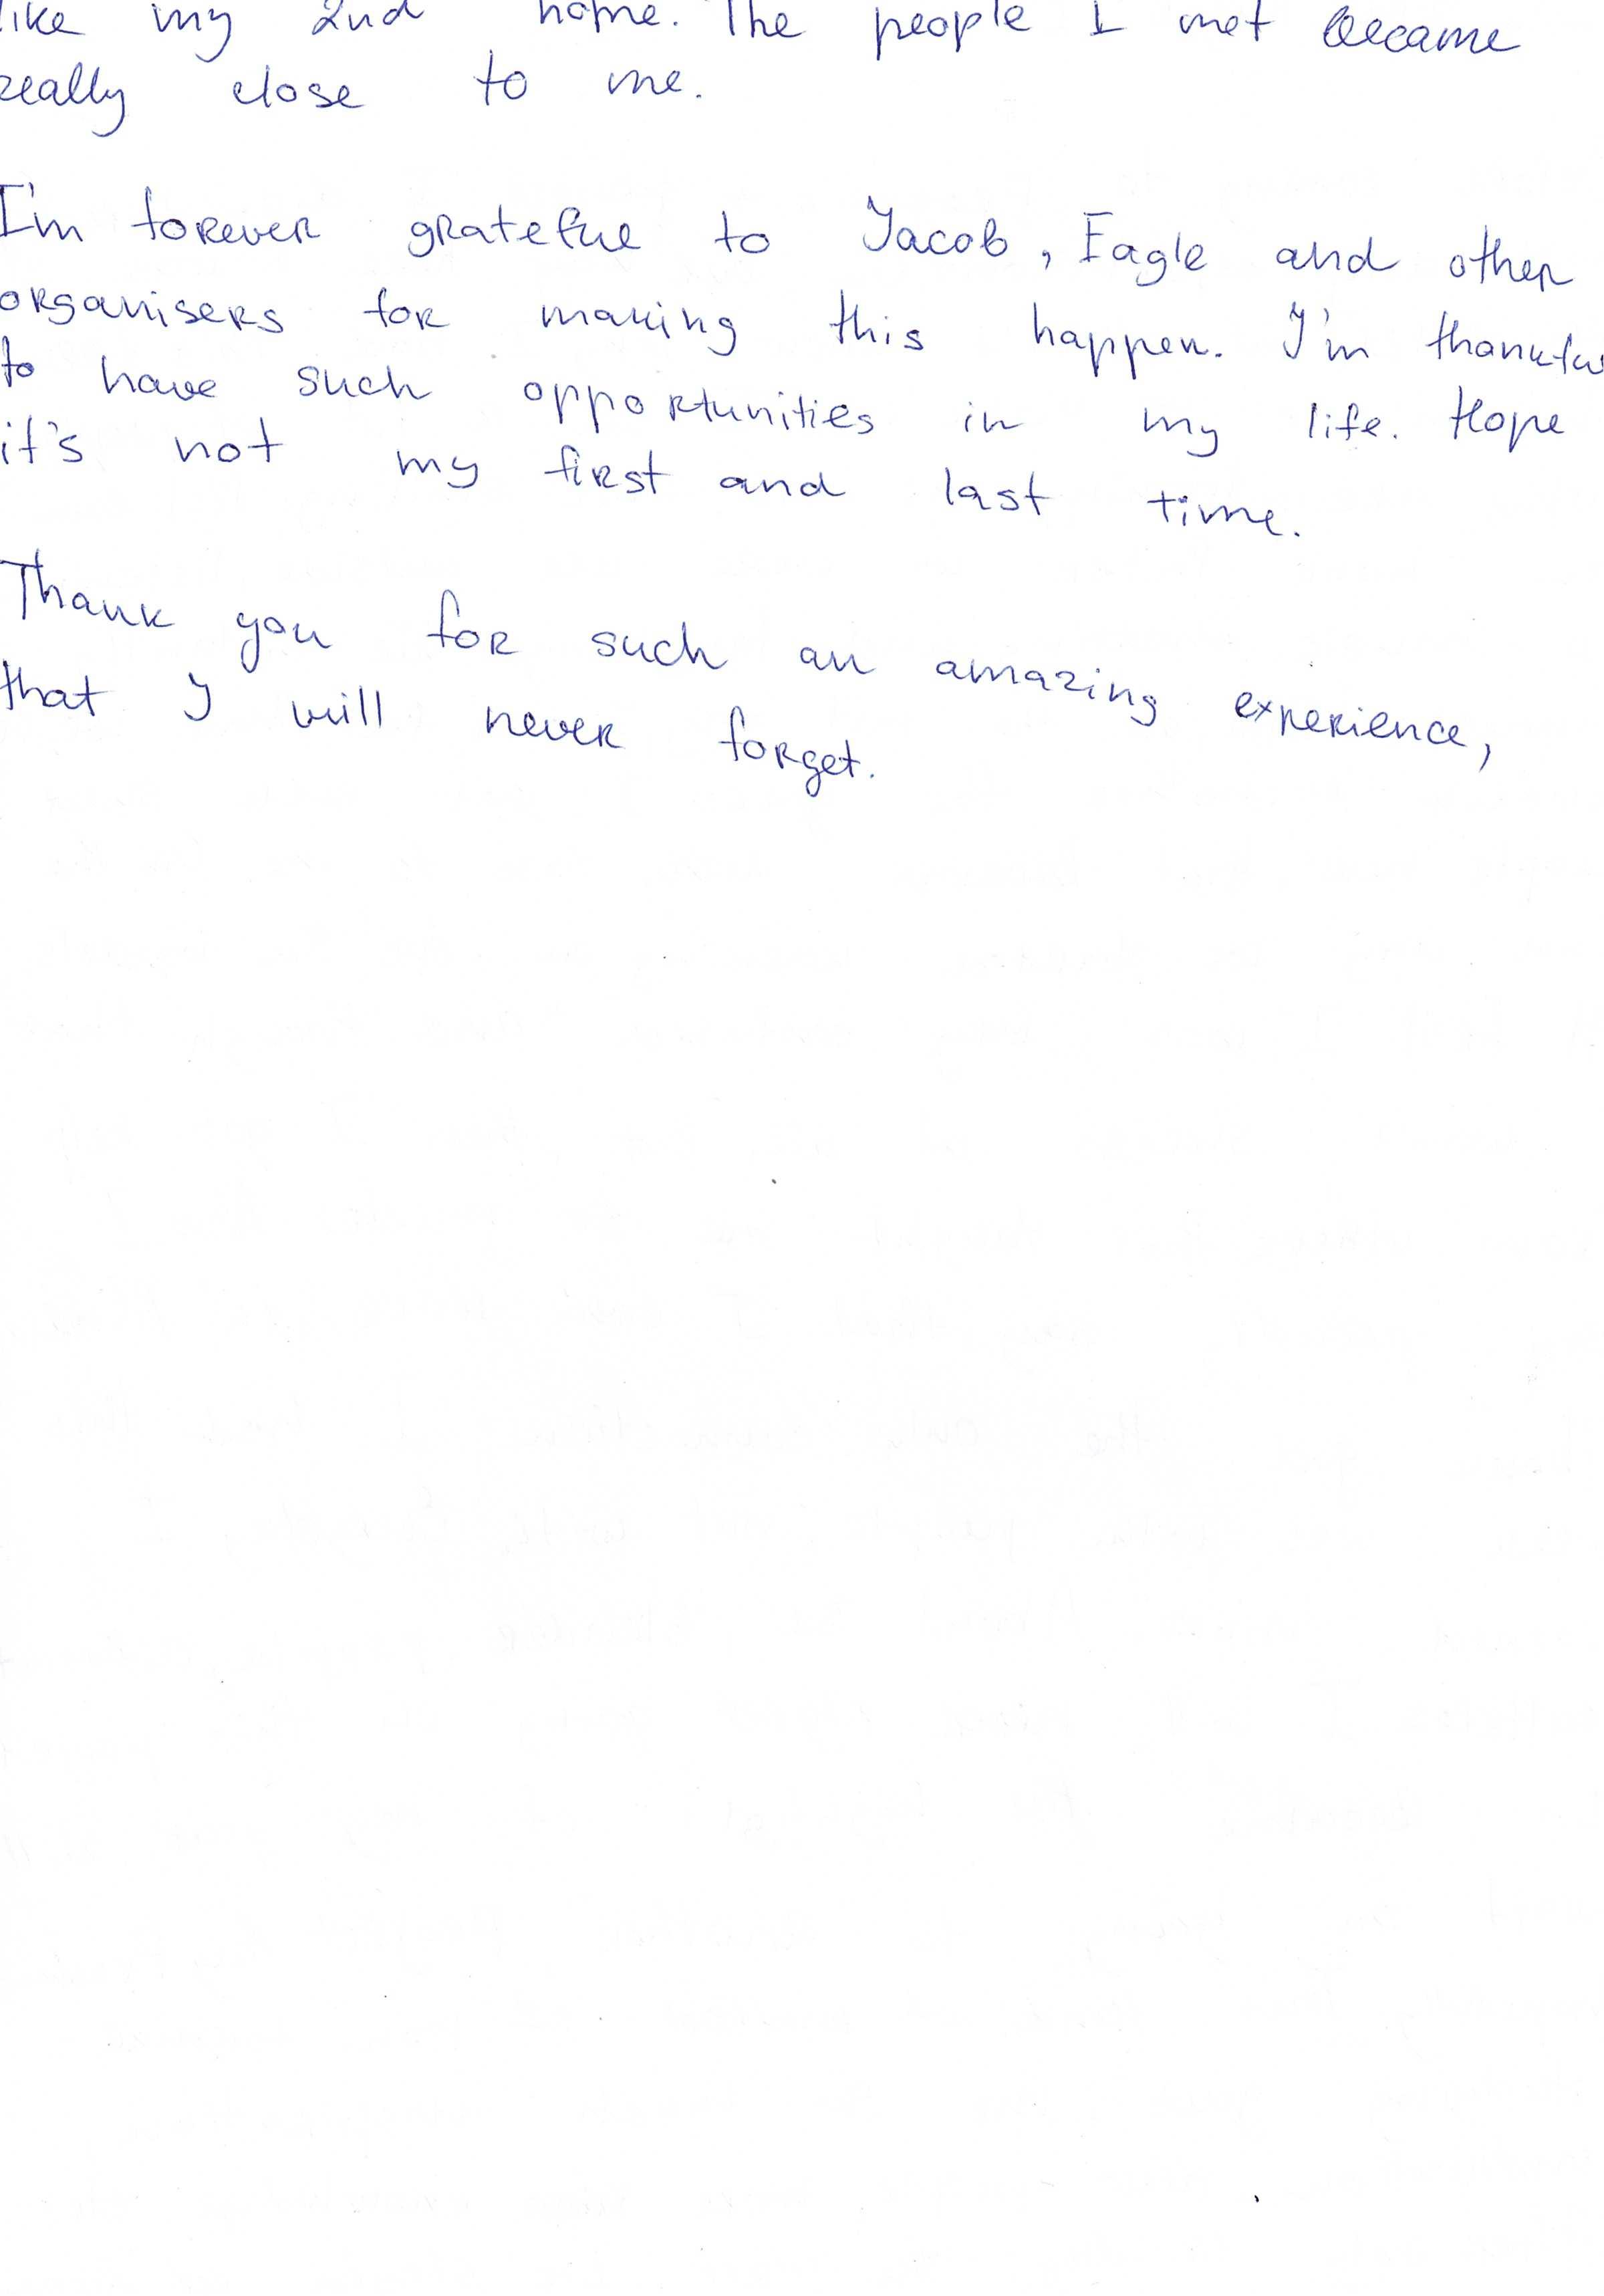 like my 2nd home. The people I met became
really close to me.
I'm forever grateful to Jacob, Eagle and other
organisers for making this happen. I'm thankful
to have such opportunities in my life. Hope
it's not my first and last time.
Thank you for such an amazing experience,
that I will never forget.